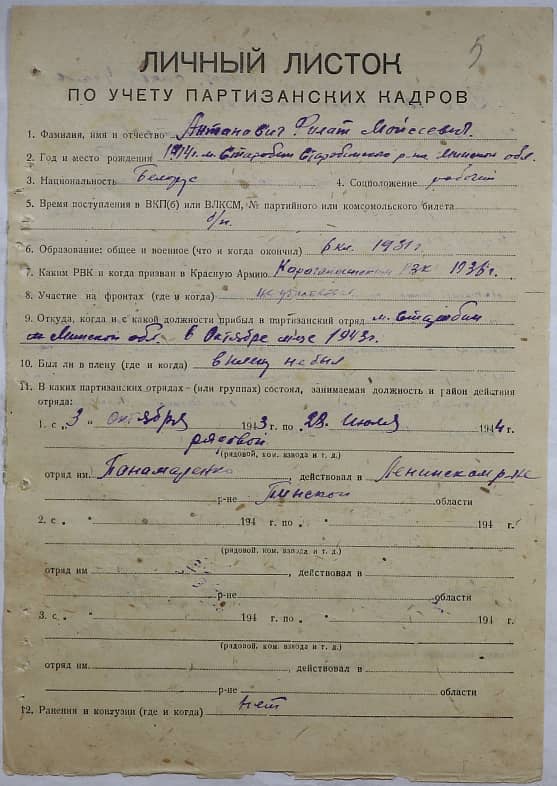 5
ЛИЧНЫЙ ЛИСТОК
ПО УЧЕТУ ПАРТИЗАНСКИХ КАДРОВ
1. Фамилия, имя и отчество Антанович Филат Мойсеевич.
2. Год и место рождения 1914 г. м. Старобин Старобинского р-на Минской обл.
3. Национальность Белорус 4. Соцположение рабочий
5. Время поступления в ВКП(б) или ВЛКСМ, № партийного или комсомольского билета
б/п.
6. Образование: общее и военное (что и когда окончил) 6 кл. 1931 г.
7. Каким РВК и когда призван в Красную Армию РВК 1936 г.
8. Участие на фронтах (где и когда) не участвовал
9. Откуда, когда и с какой должности прибыл в партизанский отряд м. Старобин
Минской обл. в Октябре м-це 1943 г.
10. Был ли в плену (где и когда) в плену не был
11. В каких партизанских отрядах (или группах) состоял, занимаемая должность и район действия
отряда:
1. с „3" Октября 1943 г. по 28. Июля 1944 г.
рядовой
(рядовой, ком. взвода и т. д.)
отряд им. Панамаренко, действовал в Ленинском р-не
р-не Пинской области
2. с „ " 194 г. по " 194 г.
(рядовой, ком. взвода и т. д.)
отряд им. , действовал в
р-не области
3. с „ " 194 г. по " 194 г.
(рядовой, ком. взвода и т. д.)
отряд им. , действовал в
р-не области
12. Ранения и контузии (где и когда) Нет